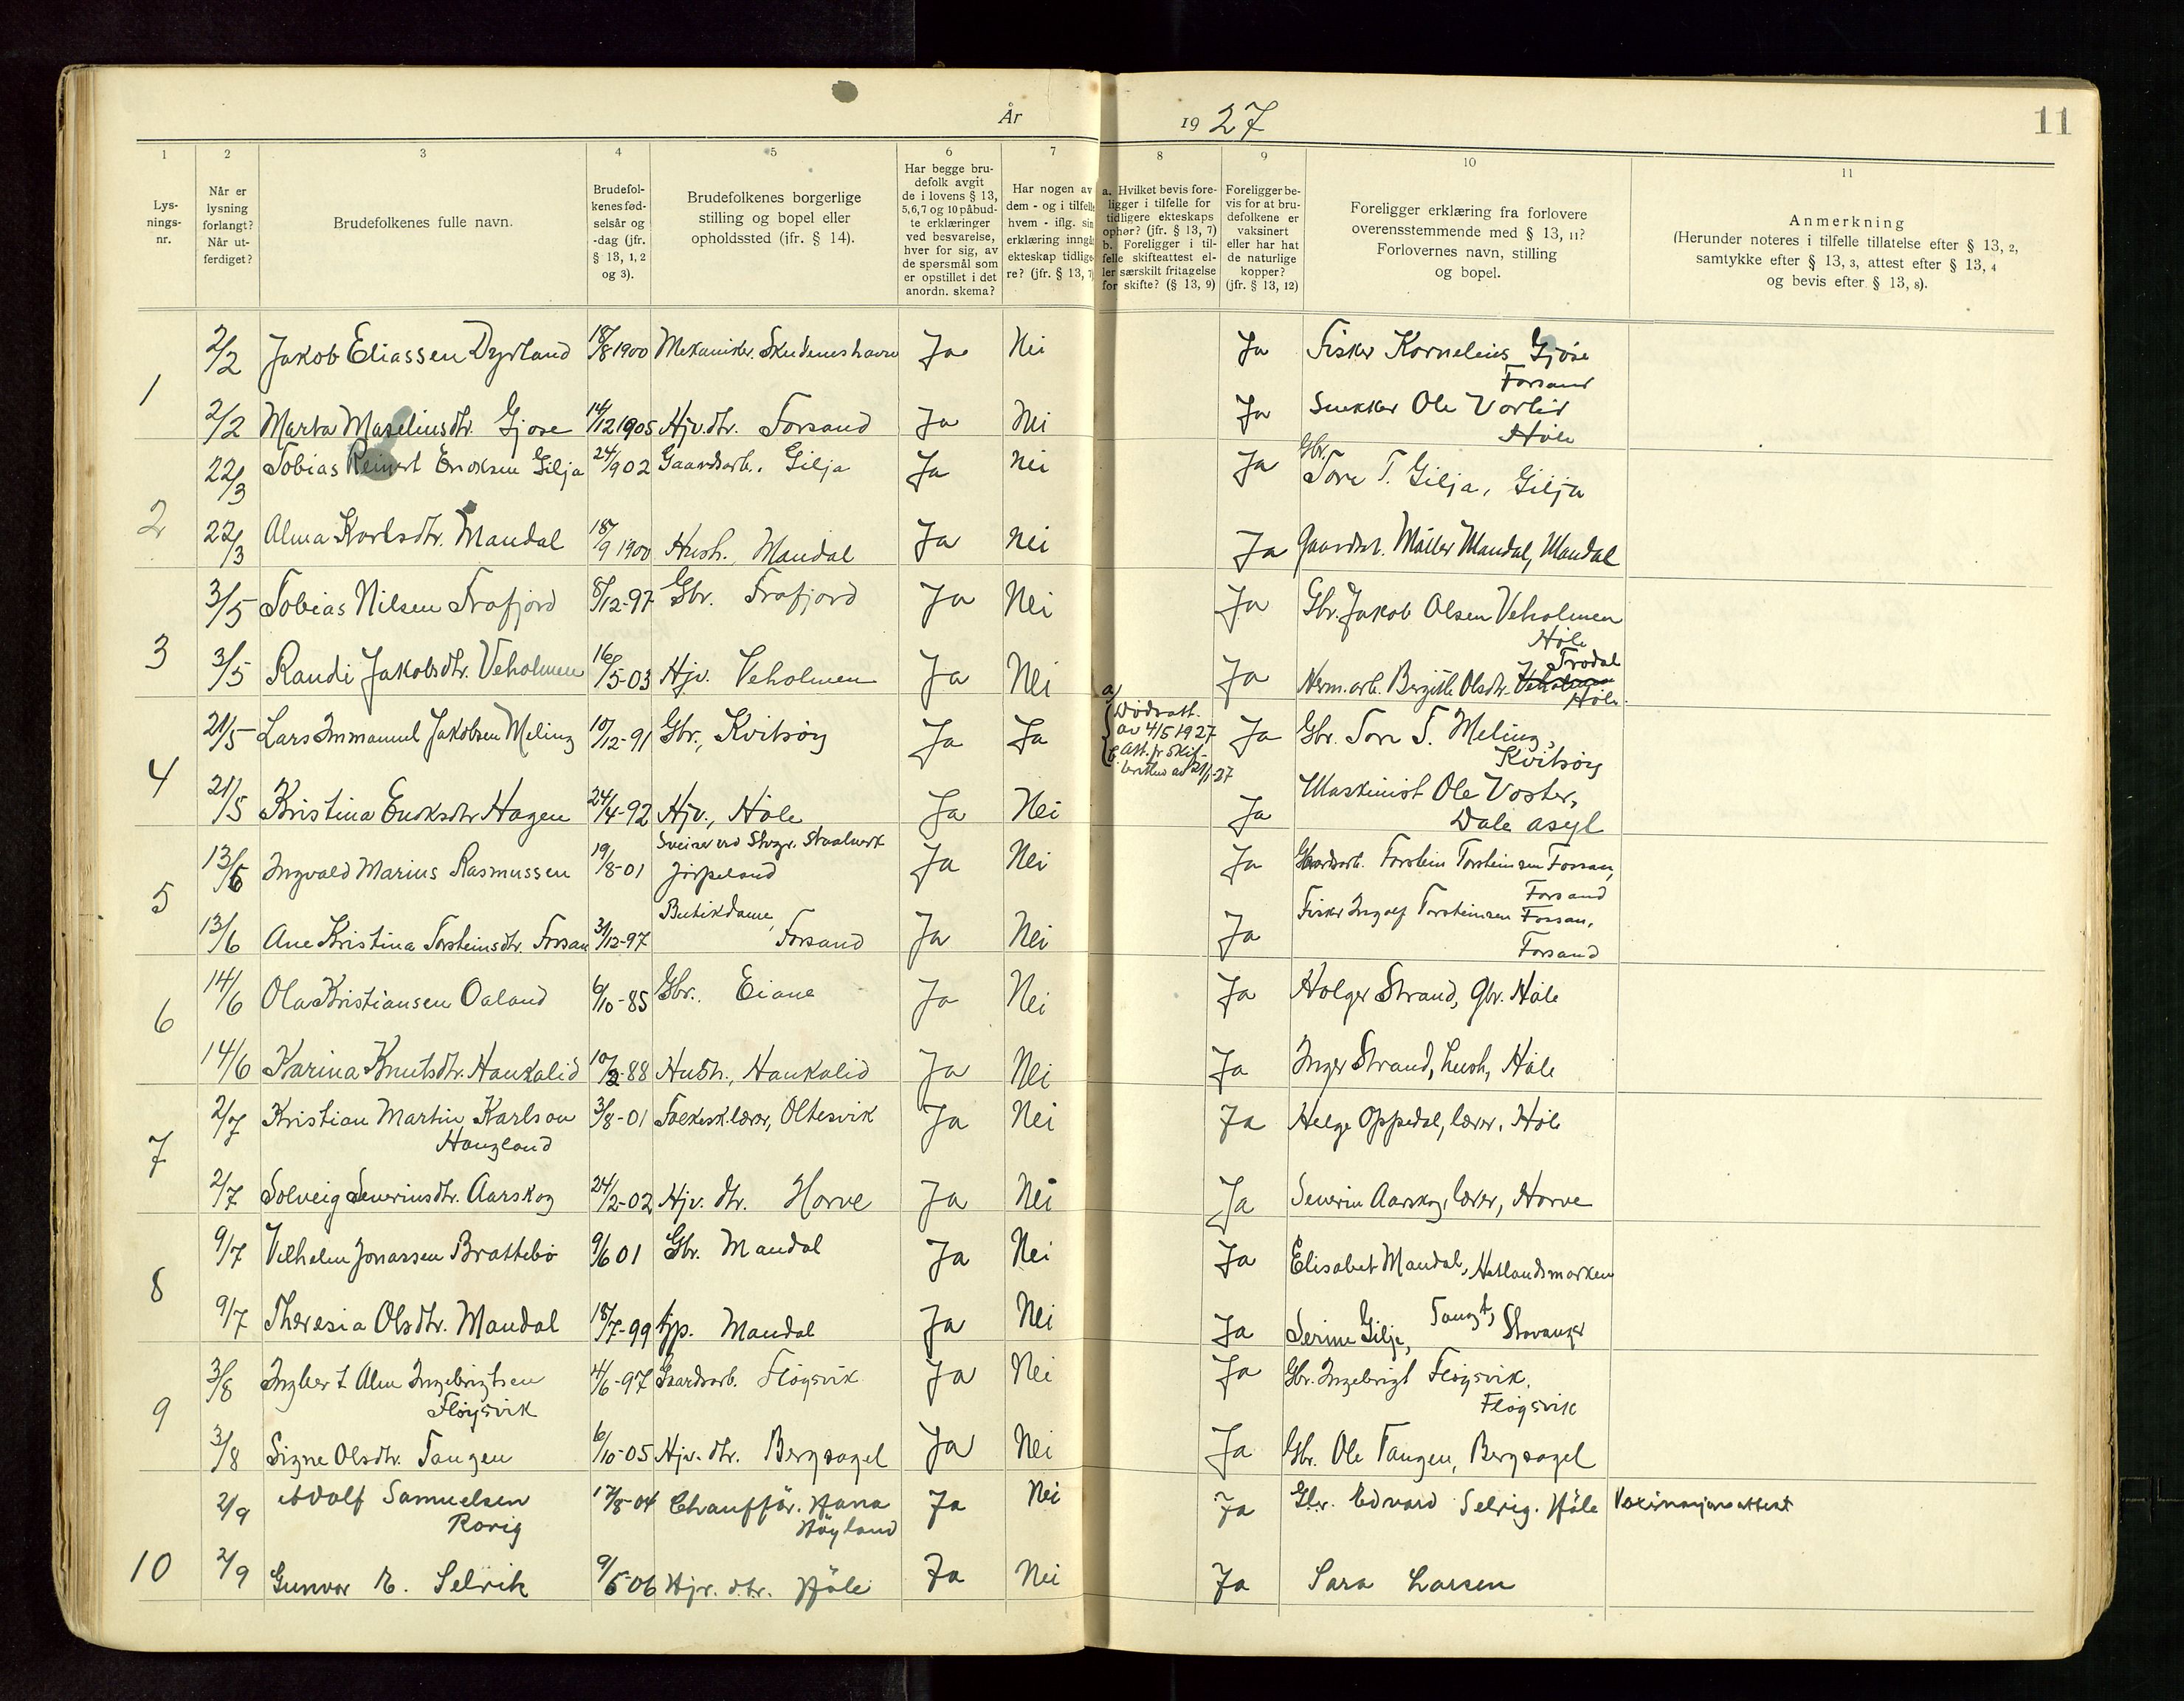 År 1927
11
1 2 3 4 5 6 7 8 9 10 11
Lys-
nings-
nr.
Når er
lysning
forlangt?
Når ut-
ferdiget?
Brudefolkenes fulle navn.
Brudefol-
kenes fød-
selsår og
-dag (jfr.
§ 13, 1, 2
og 3).
Brudefolkenes borgerlige
stilling og bopel eller
opholdssted (jfr. § 14).
Har begge bru-
defolk avgit
de i lovens § 13,
5,6,7 og 10 påbud-
te erklæringer
ved besvarelse,
hver for sig, av
de spørsmål som
er opstillet i det
anordn. skema?
Har nogen av
dem - og i tilfelle
hvem - iflg. sin
erklæring inngå
ekteskap tidlige-
re? (jfr. § 13, 7)
a. Hvilket bevis fore-
ligger i tilfelle for
tidligere ekteskaps
ophør? (jfr. § 13, 7)
b. Foreligger i til-
felle skifteattest el-
ler særskilt fritagelse
for skifte? (§ 13, 9)
Foreligger be-
vis for at bru-
defolkene er
vaksinert
eller har hat
de naturlige
kopper?
(jfr. § 13, 12)
Foreligger erklæring fra forlovere
overensstemmende med § 13, 11?
Forlovernes navn, stilling
og bopel.
Anmerkning
(Herunder noteres i tilfelle tillatelse efter § 13, 2,
samtykke efter § 13, 3, attest efter § 13, 4
og bevis efter § 13, 8).
1
2/2 Jakob Eliassen Dyrland 18/8 1900 Mekaniker. Skudeneshavn Ja Nei Ja Fisker Kornelius Gjøse
Forsand
2/2 Marta Maseliusdtr. Gjøse 14/12 1905 Hjv. dtr. Forsand Ja Nei Ja Snekker Ole Vorlid
Høle
2
22/3 Tobias Reinert Eriksen Gilja 24/9 02 Gaardsarb. Gilja Ja Nei Ja Gbr.
Tore T. Gilja, Gilja
22/3 Alma Karlsdtr. Mandal 18/9 1900 Hush. Mandal Ja Nei Ja Gaardst. Møller Mandal, Mandal
3
3/5 Tobias Nilsen Frafjord 8/12-97 Gbr. Frafjord Ja Nei Ja Gbr. Jakob Olsen Veholmen
Høle
3/5 Randi Jakobsdtr. Veholmen 16/5-03 Hjv. Veholmen Ja Nei Ja Herm. arb. Bergitte Olsdtr. Veholmen Trodal
Høle.
4
21/5 Lars Immanuel Jakobsen Meling 10/12-91 Gbr., Kvitsøy Ja Ja a) Dødsatt.
av 4/5 1927
b. Att. fr. skif-
av 21/1-27
Ja Gbr. Tore T. Meling,
Kvitsøy
21/5 Kristina Eriksdtr Hagen 24/4-92 Hjv., Høle Ja Nei Ja Maskinist Ole Voster,
Dale asyl
5
13/6 Ingvald Marius Rasmussen 19/8-01 Sveiser ved Stvgr. Staalverk
Jørpeland Ja Nei Ja Gaardsarb. Torstein Torsteinsen Fossan,
Forsand
13/6 Ane Kristina Torsteinsdtr. Fossan 31/12-97 Butikdame,
Forsand Ja Nei Ja Fisker Ingolf Torsteinsen Fossan,
Forsand
6
14/6 Ola Kristiansen Oaland 6/10-85 Gbr. Eiane Ja Nei Ja Holger Strand, Gbr. Høle
14/6 Karina Knutsdtr. Haukalid 10/2-88 Hush., Haukalid Ja Nei Ja Inger Strand, hush, Høle
7
2/7 Kristian Martin Karlson
Haugland 3/8-01 Folkesk.lærer, Oltesvik Ja Nei Ja Helge Oppedal, lærer, Høle
2/7 Solveig Severinsdtr. Aarskog 24/2-02 Hjv. dtr. Horve Ja Nei Ja Severin Aarskog, lærer, Horve
8
9/7 Vilhelm Jonassen Brattebø 9/6 01 Gbr. Mandal Ja Nei Ja Elisabet Mandal, Hetlandsmarken
9/7 Theresia Olsdtr. Mandal 18/7-99 tjp. Mandal Ja Nei Ja Serine Gilje, Tangt, Stavanger
9
3/8 Ingbert Alm Ingebrigtsen
Fløysvik 4/6-97 Gaardsarb. Fløysvik Ja Nei Ja Gbr. Ingebrigt Fløysvik,
Fløysvik
3/8 Signe Olsdtr. Tangen 6/10-05 Hjv. dtr. Bergsagel Ja Nei Ja Gbr. Ole Tangen, Bergsagel
10
2/9 Adolf Samuelsen
Rovig 17/8-04 Chauffør. Hana
Høyland Ja Nei Ja Gbr. Edvard Selvig. Høle Vaxinasjonsattest
2/9 Gunvor E. Selvik 9/5-06 Hjv. dtr. Høle Ja Nei Ja Sara Larsen